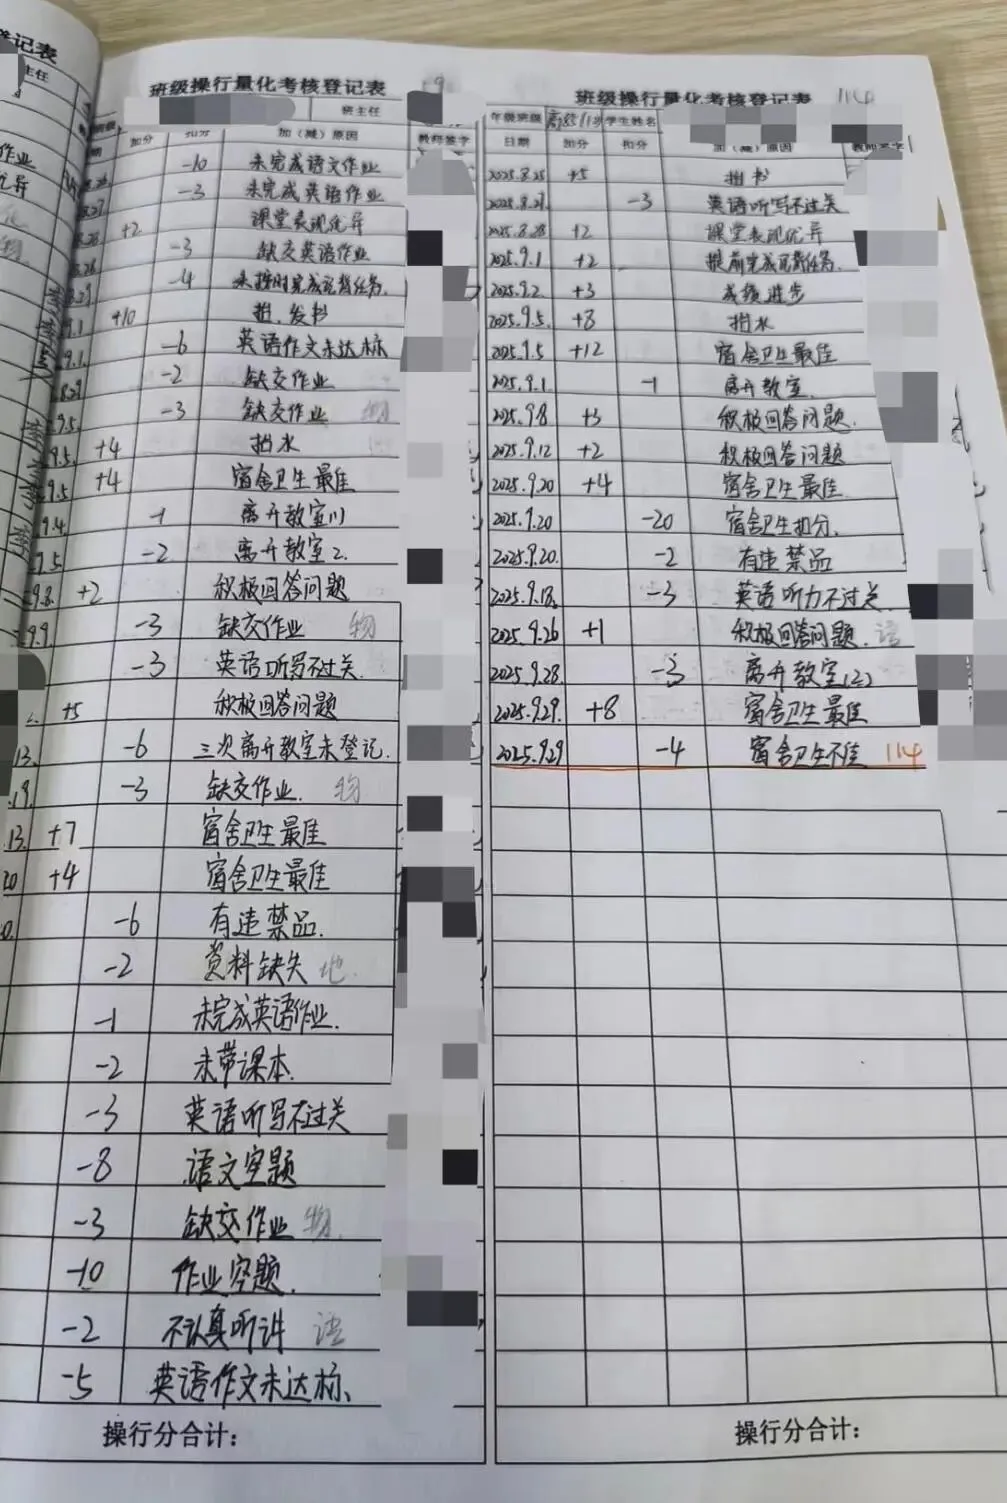 登记表
主任
作业
优异
班级操行量化考核登记表
班主任
加分 扣分 加（减）原因 教师签字
-10 未完成语文作业
-3 未完成英语作业
+2 课堂表现优异
-3 缺交英语作业
-4 未按时完成背任务
+10 担、发书
-6 英语作文未达标
-2 缺交作业
-3 缺交作业 物
9.5. +4 抬水
9.5 +4 宿舍卫生最佳
9.4. -1 离开教室
9.5 -2 离开教室2.
9.8. +2 积极回答问题
9.9. -3 缺交作业 物
-3 英语听写不过关.
+5 积极回答问题
13. -6 三次离开教室未登记.
19. -3 缺交作业. 物
13. +7 宿舍卫生最佳
20 +4 宿舍卫生最佳
-6 有违禁品.
-2 资料缺失 地.
-1 未完成英语作业.
-2 未带课本.
-3 英语听写不过关
-8 语文空题
-3 缺交作业 物.
-10 作业空题.
-2 不认真听讲 语
-5 英语作文未达标、
操行分合计：
班级操行量化考核登记表 114
年级班级 学生姓名
日期 加分 扣分 加（减）原因 教师签字
2025.8.25 +5 担书
2025.8.27. -3 英语听写不过关
2025.8.28 +2 课堂表现优异
2025.9.1 +2 提前完成背任务.
2025.9.2. +3 成绩进步
2025.9.5. +8 抬水
2025.9.5 +12 宿舍卫生最佳
2025.9.1 -1 离开教室.
2025.9.8 +3 积极回答问题.
2025.9.12 +2 积极回答问题
2025.9.20 +4 宿舍卫生最佳
2025.9.20 -20 宿舍卫生扣分.
2025.9.20. -2 有违禁品
2025.9.18. -3 英语听力不过关.
2025.9.26 +1 积极回答问题. 语
2025.9.28. -3 离开教室(2)
2025.9.29. +8 宿舍卫生最佳
2025.9.29 -4 宿舍卫生不佳 114
操行分合计：